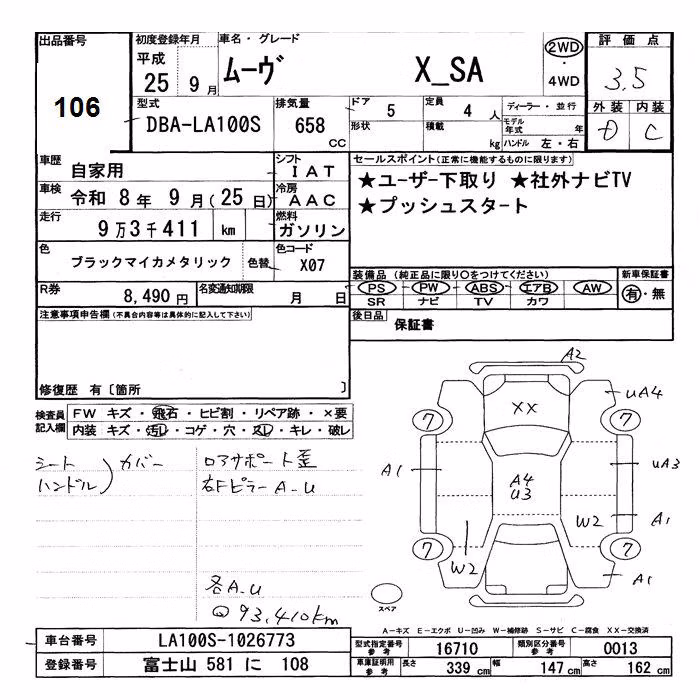 出品番号
106
初度登録年月
平成
25年 9月
車名・グレード
ムーヴ X_SA
2WD
・
4WD
評価点
3.5
外装 内装
D C
型式
DBA-LA100S
排気量
658 CC
ドア 5
定員 4人
形状
積載 kg
ディーラー・並行
モデル年式 年
ハンドル 左・右
車歴 自家用
シフト IAT
車検 令和 8年 9月(25日)
冷房 AAC
走行 9万3千411 km
燃料 ガソリン
色 ブラックマイカメタリック 色替
色コード X07
R券 8,490円
名変通知期限 月 日
セールスポイント(正常に機能するものに限ります)
★ユーザー下取り ★社外ナビTV
★プッシュスタート
装備品 (純正品に限り○をつけてください)
PS PW ABS エアB AW
SR ナビ TV カワ
新車保証書
有・無
後日品 保証書
注意事項申告欄(不具合内容等は具体的に記入して下さい)
修復歴 有〔箇所 〕
検査員記入欄
FW キズ・飛石・ヒビ割・リペア跡・×要
内装 キズ・汚レ・コゲ・穴・スレ・キレ・破レ
シート
ハンドル
カバー
ロアサポート歪
右Fピラー A-U
各A.U
Q 93,410km
A2
UA4
7
XX
7
A1
A4
U3
UA3
W2
A1
7
W2
7
A1
スペア
A-キズ E-エクボ U-凹み W-補修跡 S-サビ C-腐食 XX-交換済
車台番号 LA100S-1026773
登録番号 富士山 581 に 108
型式指定番号 参考 16710
類別区分番号 参考 0013
車庫証明用 参考
長さ 339 cm
幅 147 cm
高さ 162 cm